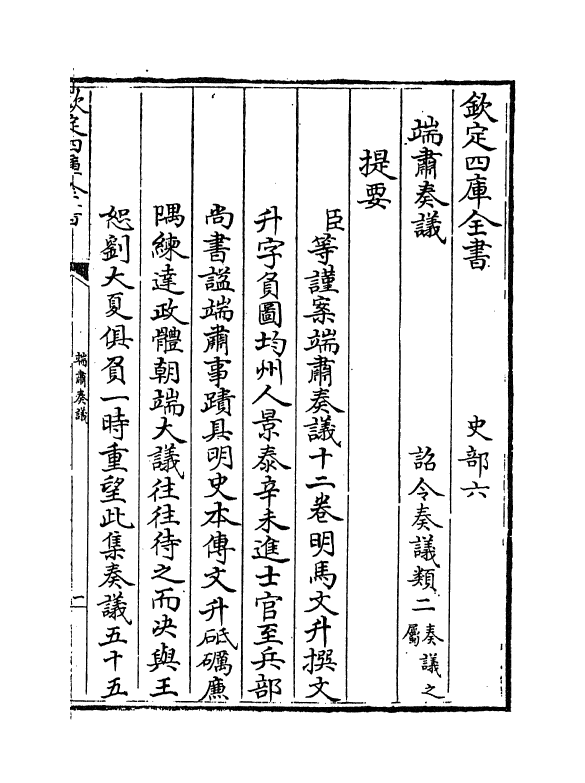 欽定四庫全書 史部六
端肅奏議 詔令奏議類二奏議之屬
提要
臣等謹案端肅奏議十二卷明馬文升撰文
升字負圖均州人景泰辛未進士官至兵部
尚書謚端肅事蹟具明史本傳文升砥礪廉
隅練達政體朝端大議往往待之而决與王
恕劉大夏俱負一時重望此集奏議五十五
欽定四庫全書
端肅奏議